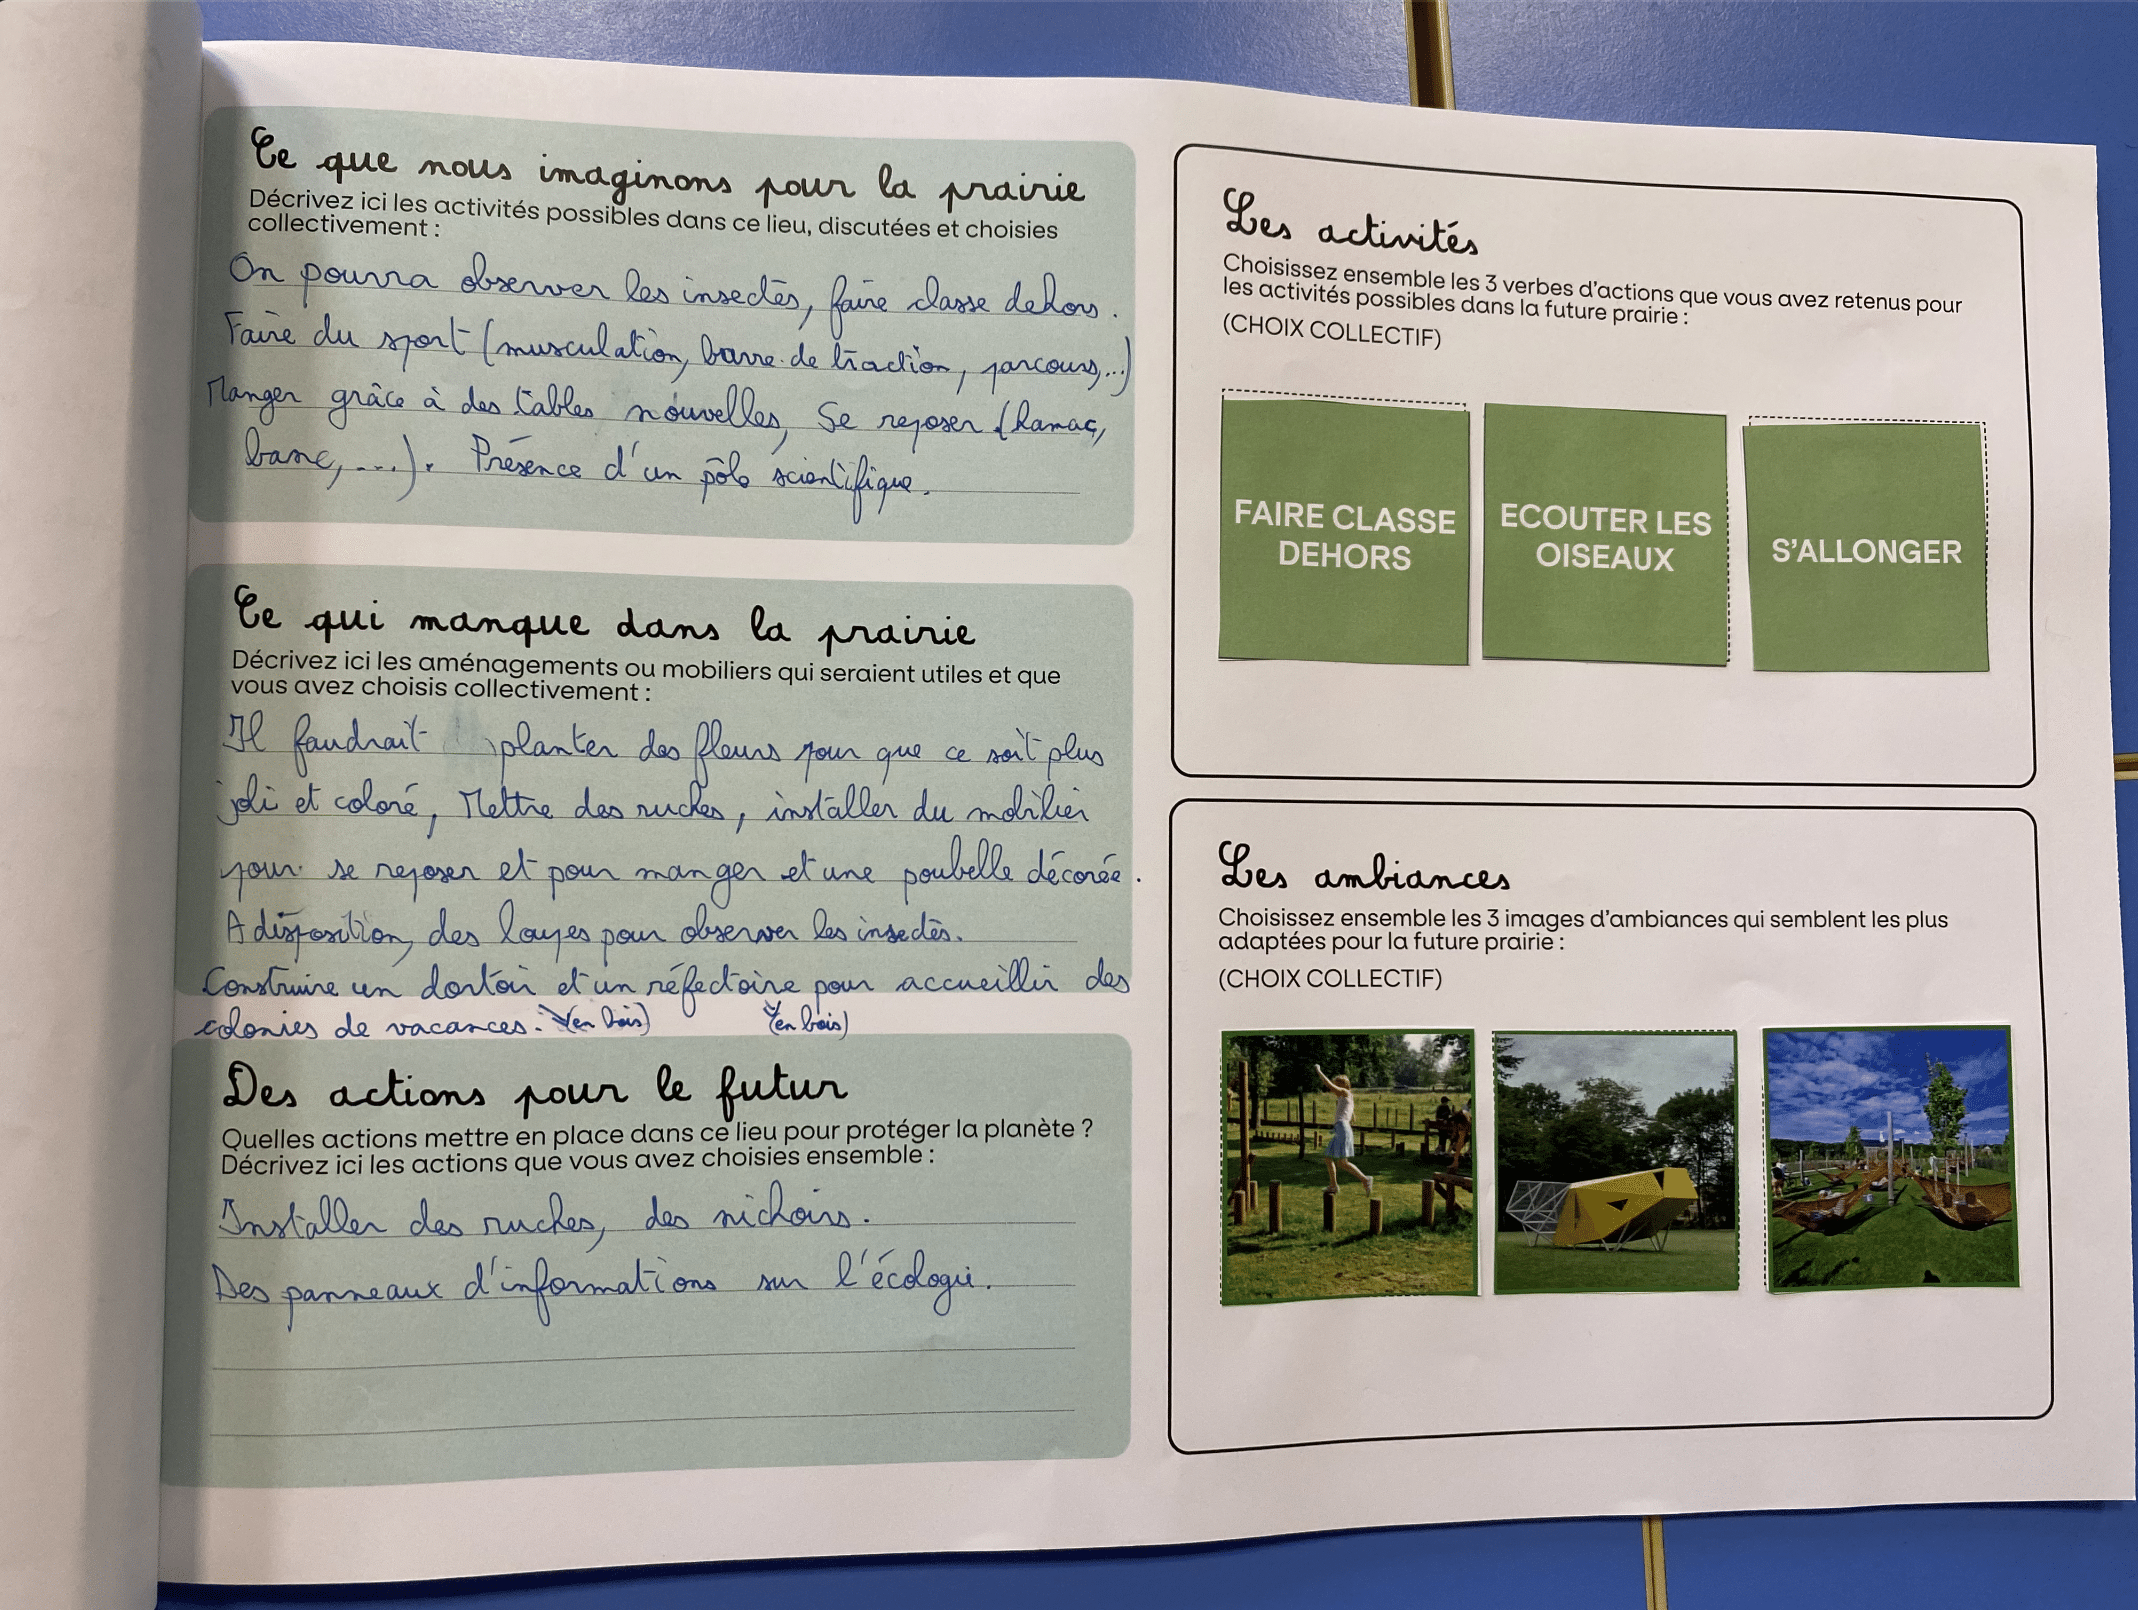 Ce que nous imaginons pour la prairie
Décrivez ici les activités possibles dans ce lieu, discutées et choisies
collectivement :
On pourra observer les insectes, faire classe dehors.
Faire du sport (musculation, barre de traction, parcours,...)
Manger grâce à des tables nouvelles, Se reposer (hamac,
banc, ...). Présence d'un pôle scientifique.
Ce qui manque dans la prairie
Décrivez ici les aménagements ou mobiliers qui seraient utiles et que
vous avez choisis collectivement :
Il faudrait planter des fleurs pour que ce soit plus
joli et coloré, Mettre des ruches, installer du mobilier
pour se reposer et pour manger et une poubelle décorée.
A disposition, des loupes pour observer les insectes.
Construire un dortoir et un réfectoire pour accueillir des
colonies de vacances. (en bois) (en bois)
Des actions pour le futur
Quelles actions mettre en place dans ce lieu pour protéger la planète ?
Décrivez ici les actions que vous avez choisies ensemble :
Installer des ruches, des nichoirs.
Des panneaux d'informations sur l'écologie.
Les activités
Choisissez ensemble les 3 verbes d'actions que vous avez retenus pour
les activités possibles dans la future prairie :
(CHOIX COLLECTIF)
FAIRE CLASSE
DEHORS
ECOUTER LES
OISEAUX
S'ALLONGER
Les ambiances
Choisissez ensemble les 3 images d'ambiances qui semblent les plus
adaptées pour la future prairie :
(CHOIX COLLECTIF)